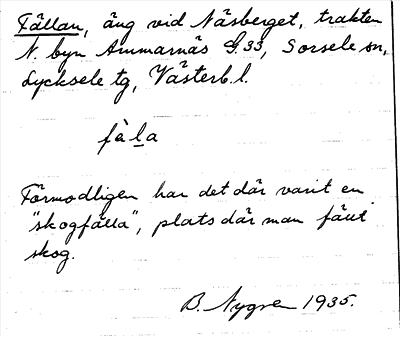 Fällan, äng vid Näsberget, trakten
N. byn Ammarnäs G.33, Sorsele sn,
Lycksele tg, Västerb.l.
fàla
Förmodligen har det där varit en
"skogfälla", plats där man fällt
skog.
B. Nygre 1935.